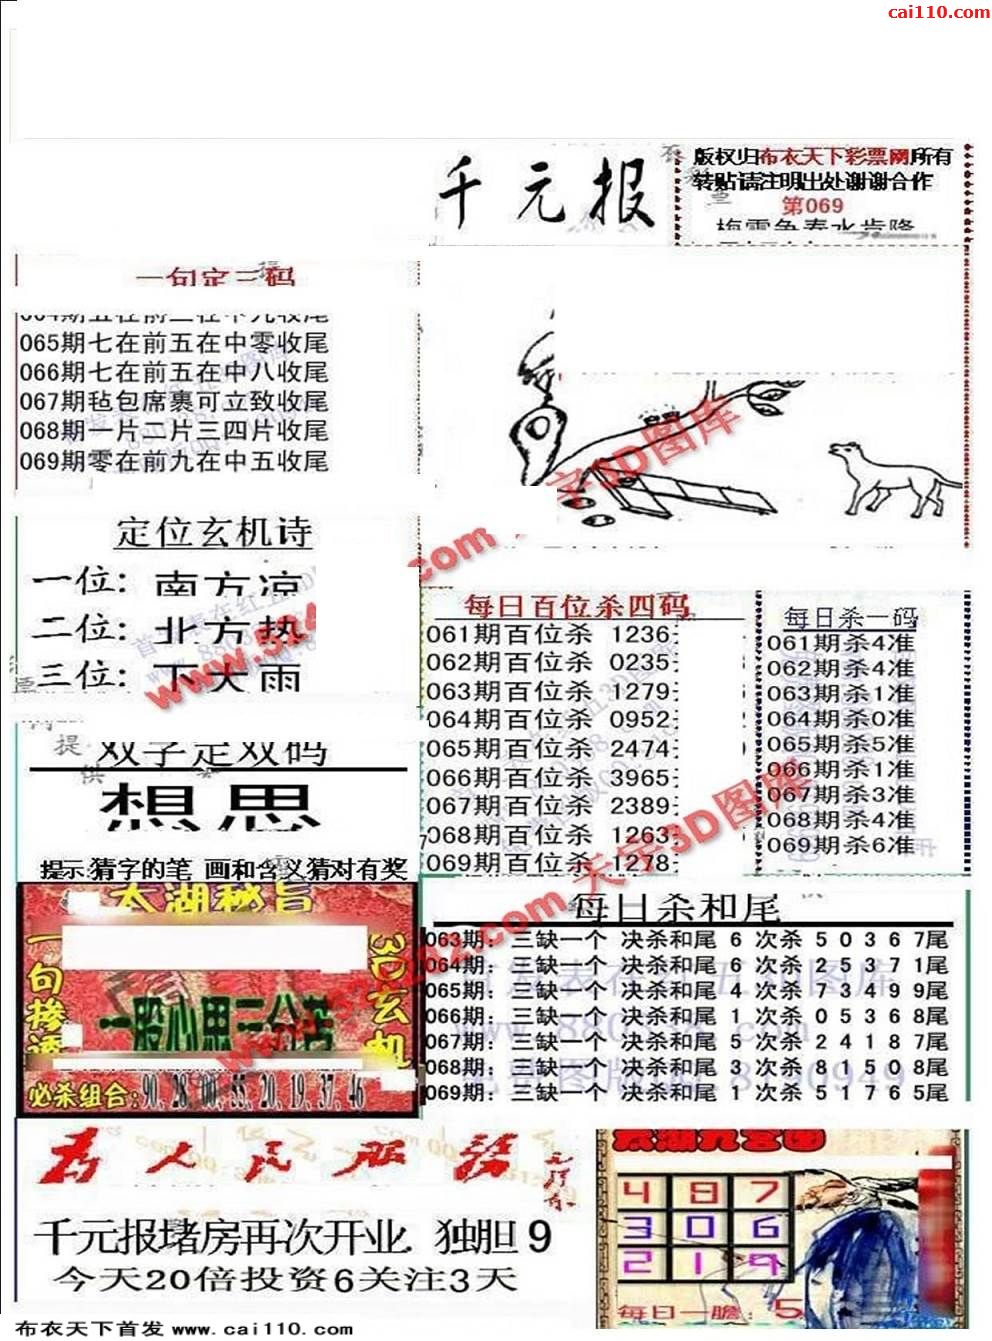 cai110.com
千元报
版权归布衣天下彩票网所有
转贴请注明出处谢谢合作
第069
梅雪争春水肯降
一句定三码
064期五在前二在中九收尾
065期七在前五在中零收尾
066期七在前五在中八收尾
067期毡包席裹可立致收尾
068期一片二片三四片收尾
069期零在前九在中五收尾
定位玄机诗
一位: 南方凉
二位: 北方热
三位: 下大雨
每日百位杀四码
061期百位杀 1236
062期百位杀 0235
063期百位杀 1279
064期百位杀 0952
065期百位杀 2474
066期百位杀 3965
067期百位杀 2389
068期百位杀 1263
069期百位杀 1278
每日杀一码
061期杀4准
062期杀4准
063期杀1准
064期杀0准
065期杀5准
066期杀1准
067期杀3准
068期杀4准
069期杀6准
双字定双码
想思
提示:猜字的笔 画和含义猜对有奖
太湖秘旨
一句掺透
3D玄机
一股心思三分苦
必杀组合:90,28,00,55,20,19,37,46
每日杀和尾
063期: 三缺一个 决杀和尾 6 次杀 5 0 3 6 7尾
064期: 三缺一个 决杀和尾 6 次杀 2 5 3 7 1尾
065期: 三缺一个 决杀和尾 4 次杀 7 3 4 9 9尾
066期: 三缺一个 决杀和尾 1 次杀 0 5 3 6 8尾
067期: 三缺一个 决杀和尾 5 次杀 2 4 1 8 7尾
068期: 三缺一个 决杀和尾 3 次杀 8 1 5 0 8尾
069期: 三缺一个 决杀和尾 1 次杀 5 1 7 6 5尾
为人民服务
千元报堵房再次开业. 独胆 9
今天20倍投资6关注3天
太湖九宫图
4 8 7
3 0 6
2 1 9
每日一胆: 5
天宇3D图库
布衣天下首发 www.cai110.com